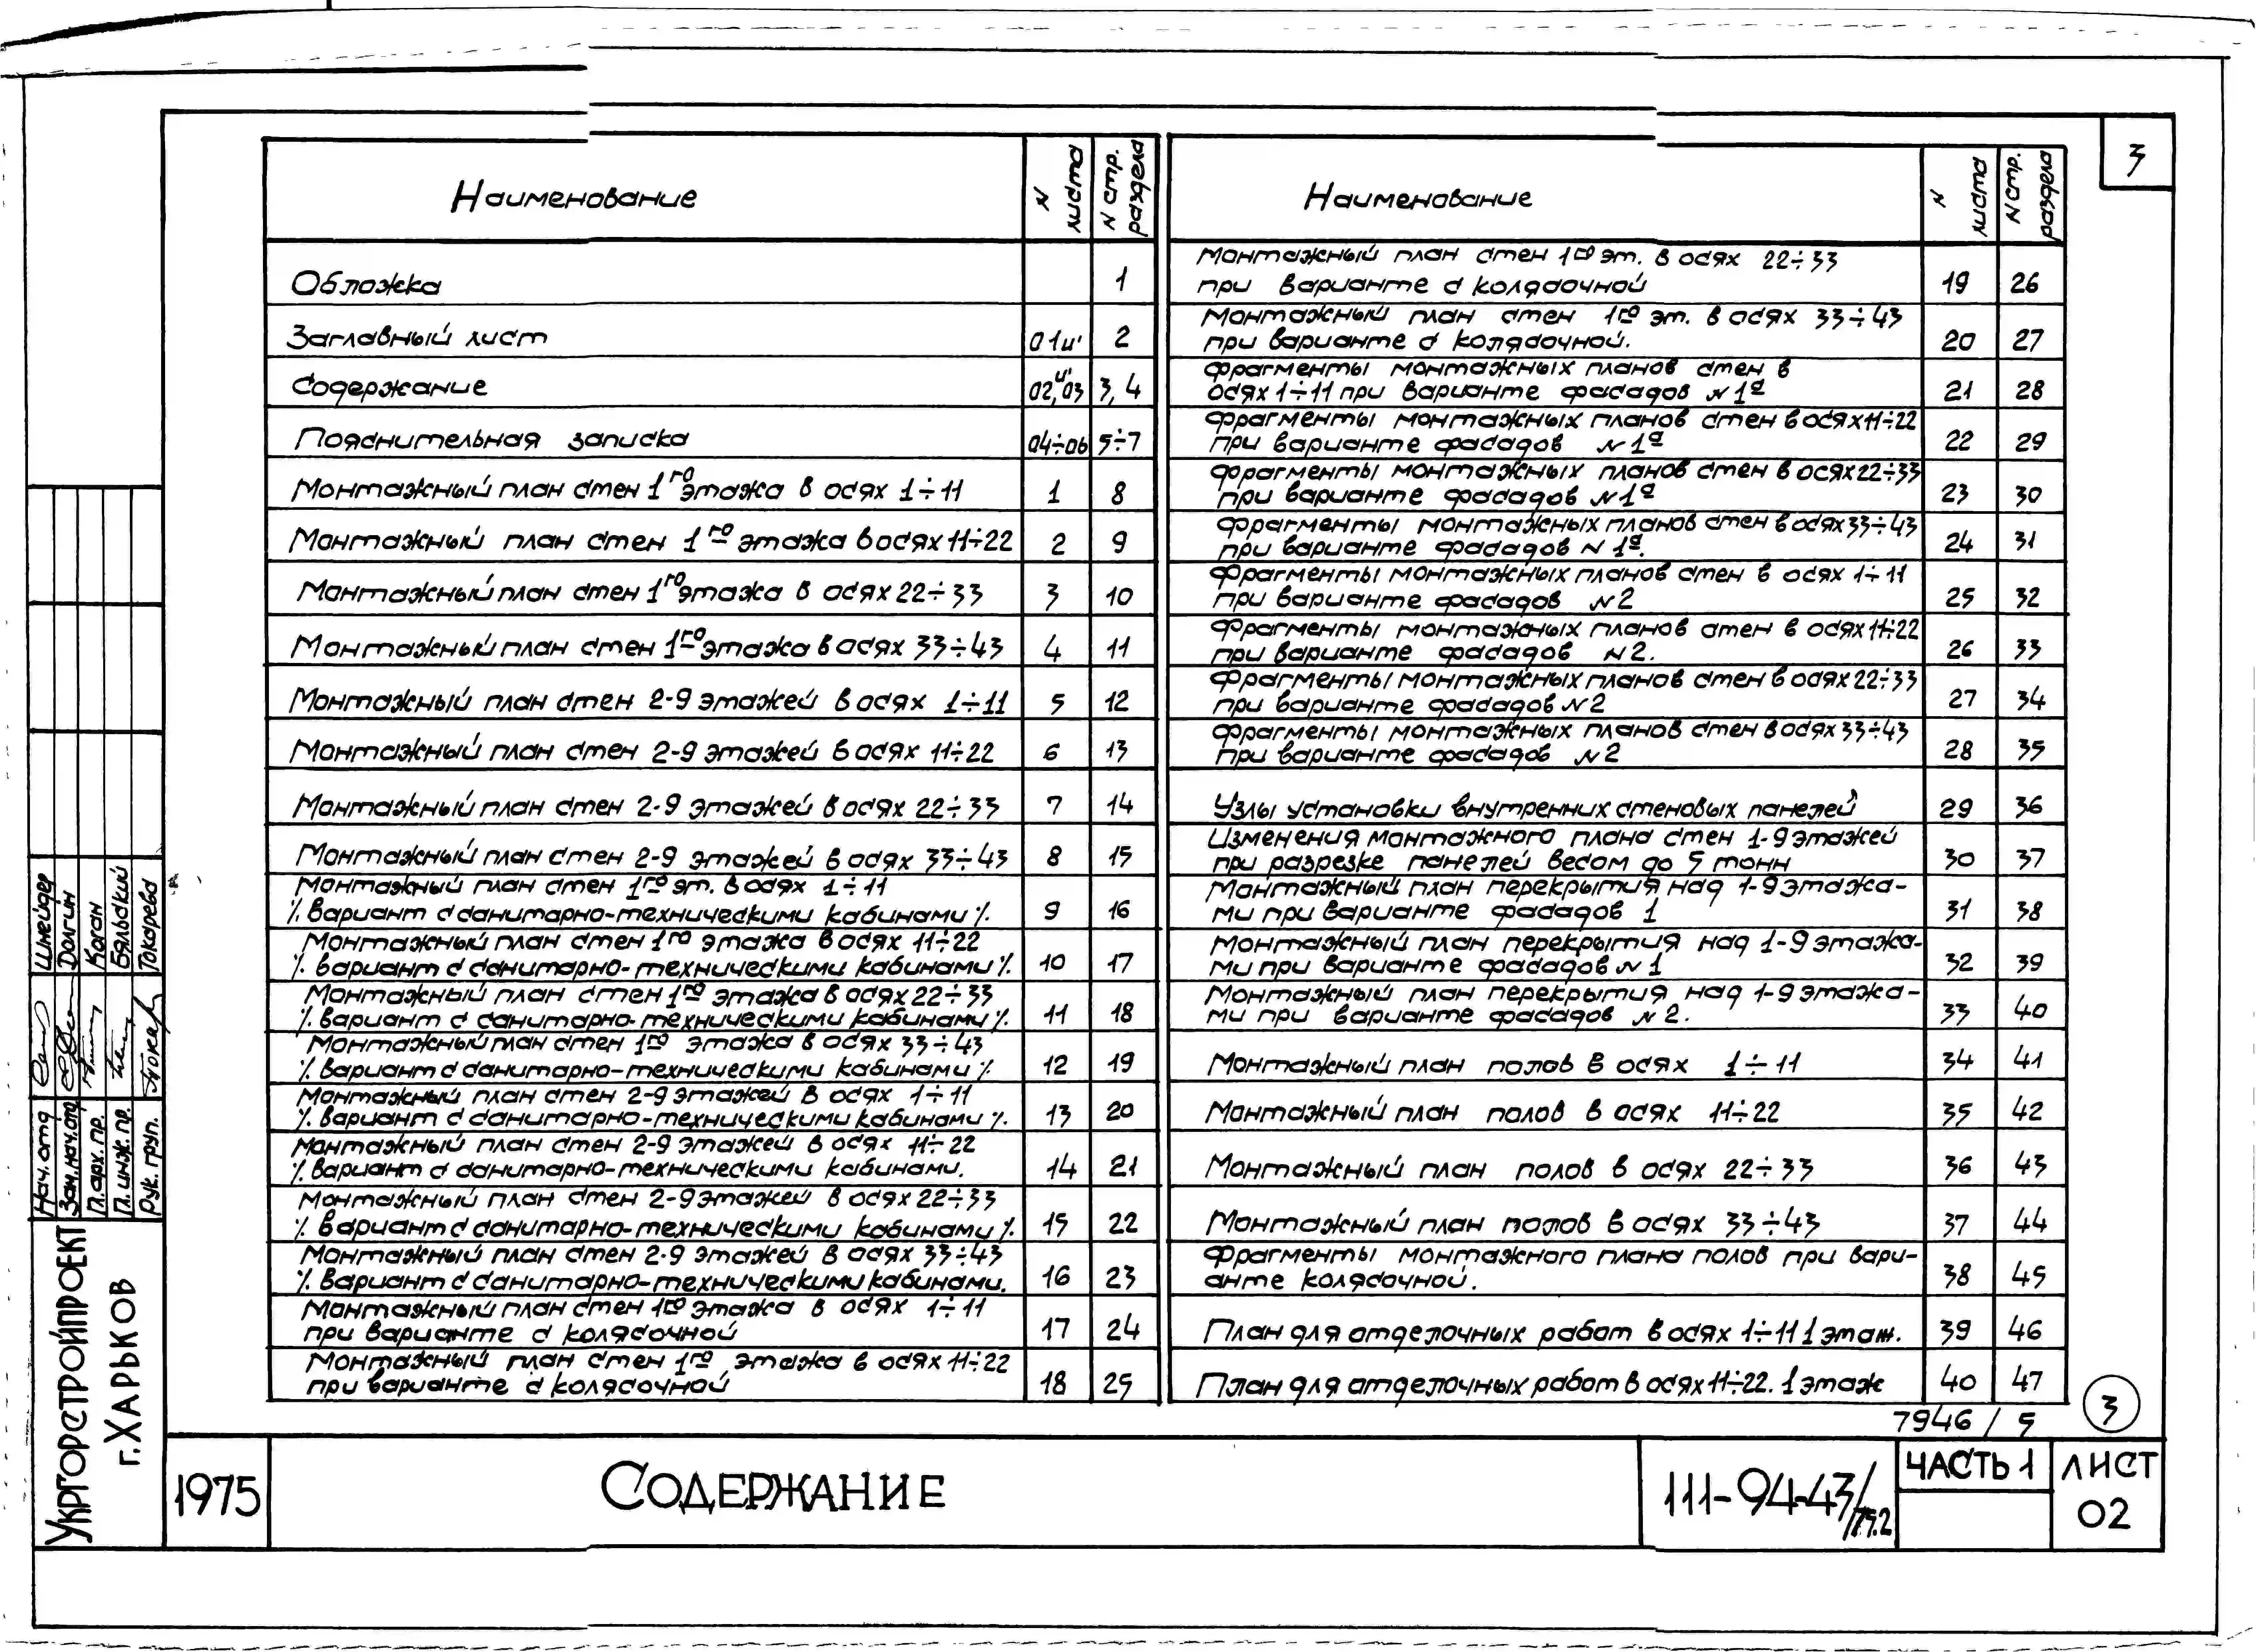 3
Наименование
N листа
N стр. раздела
Обложка 1
Заглавный лист 01и' 2
Содержание 02,и'03 3,4
Пояснительная записка 04÷06 5÷7
Монтажный план стен 1го этажа в осях 1÷11 1 8
Монтажный план стен 1го этажа в осях 11÷22 2 9
Монтажный план стен 1го этажа в осях 22÷33 3 10
Монтажный план стен 1го этажа в осях 33÷43 4 11
Монтажный план стен 2-9 этажей в осях 1÷11 5 12
Монтажный план стен 2-9 этажей в осях 11÷22 6 13
Монтажный план стен 2-9 этажей в осях 22÷33 7 14
Монтажный план стен 2-9 этажей в осях 33÷43 8 15
Монтажный план стен 1го эт. в осях 1÷11
/. вариант с санитарно-техническими кабинами /. 9 16
Монтажный план стен 1го этажа в осях 11÷22
/. вариант с санитарно-техническими кабинами /. 10 17
Монтажный план стен 1го этажа в осях 22÷33
/. вариант с санитарно-техническими кабинами /. 11 18
Монтажный план стен 1го этажа в осях 33÷43
/. вариант с санитарно-техническими кабинами /. 12 19
Монтажный план стен 2-9 этажей в осях 1÷11
/. вариант с санитарно-техническими кабинами /. 13 20
Монтажный план стен 2-9 этажей в осях 11÷22
/. вариант с санитарно-техническими кабинами. 14 21
Монтажный план стен 2-9 этажей в осях 22÷33
/. вариант с санитарно-техническими кабинами /. 15 22
Монтажный план стен 2-9 этажей в осях 33÷43
/. вариант с санитарно-техническими кабинами. 16 23
Монтажный план стен 1го этажа в осях 1÷11
при варианте с колясочной 17 24
Монтажный план стен 1го этажа в осях 11÷22
при варианте с колясочной 18 25
Наименование
N листа
N стр. раздела
Монтажный план стен 1го эт. в осях 22÷33
при варианте с колясочной 19 26
Монтажный план стен 1го эт. в осях 33÷43
при варианте с колясочной. 20 27
Фрагменты монтажных планов стен в
осях 1÷11 при варианте фасадов N 1а 21 28
Фрагменты монтажных планов стен в осях 11÷22
при варианте фасадов N 1а 22 29
Фрагменты монтажных планов стен в осях 22÷33
при варианте фасадов N 1а 23 30
Фрагменты монтажных планов стен в осях 33÷43
при варианте фасадов N 1а. 24 31
Фрагменты монтажных планов стен в осях 1÷11
при варианте фасадов N 2 25 32
Фрагменты монтажных планов стен в осях 11÷22
при варианте фасадов N 2. 26 33
Фрагменты монтажных планов стен в осях 22÷33
при варианте фасадов N 2 27 34
Фрагменты монтажных планов стен в осях 33÷43
при варианте фасадов N 2 28 35
Узлы установки внутренних стеновых панелей 29 36
Изменения монтажного плана стен 1-9 этажей
при разрезке панелей весом до 5 тонн 30 37
Монтажный план перекрытия над 1-9 этажа-
ми при варианте фасадов 1 31 38
Монтажный план перекрытия над 1-9 этажа-
ми при варианте фасадов N 1 32 39
Монтажный план перекрытия над 1-9 этажа-
ми при варианте фасадов N 2. 33 40
Монтажный план полов в осях 1÷11 34 41
Монтажный план полов в осях 11÷22 35 42
Монтажный план полов в осях 22÷33 36 43
Монтажный план полов в осях 33÷43 37 44
Фрагменты монтажного плана полов при вари-
анте колясочной. 38 45
План для отделочных работ в осях 1÷11 1 этаж. 39 46
План для отделочных работ в осях 11÷22. 1 этаж 40 47
7946 / 5
3
Нач. отд Шнейдер
Зам. нач. отд Долгин
Гл. арх. пр. Каган
Гл. инж. пр. Бяльский
Рук. груп. Токарева
УКРГОРСТРОЙПРОЕКТ
г. ХАРЬКОВ
1975
СОДЕРЖАНИЕ
111-94-43/75.2
ЧАСТЬ 1
ЛИСТ
02